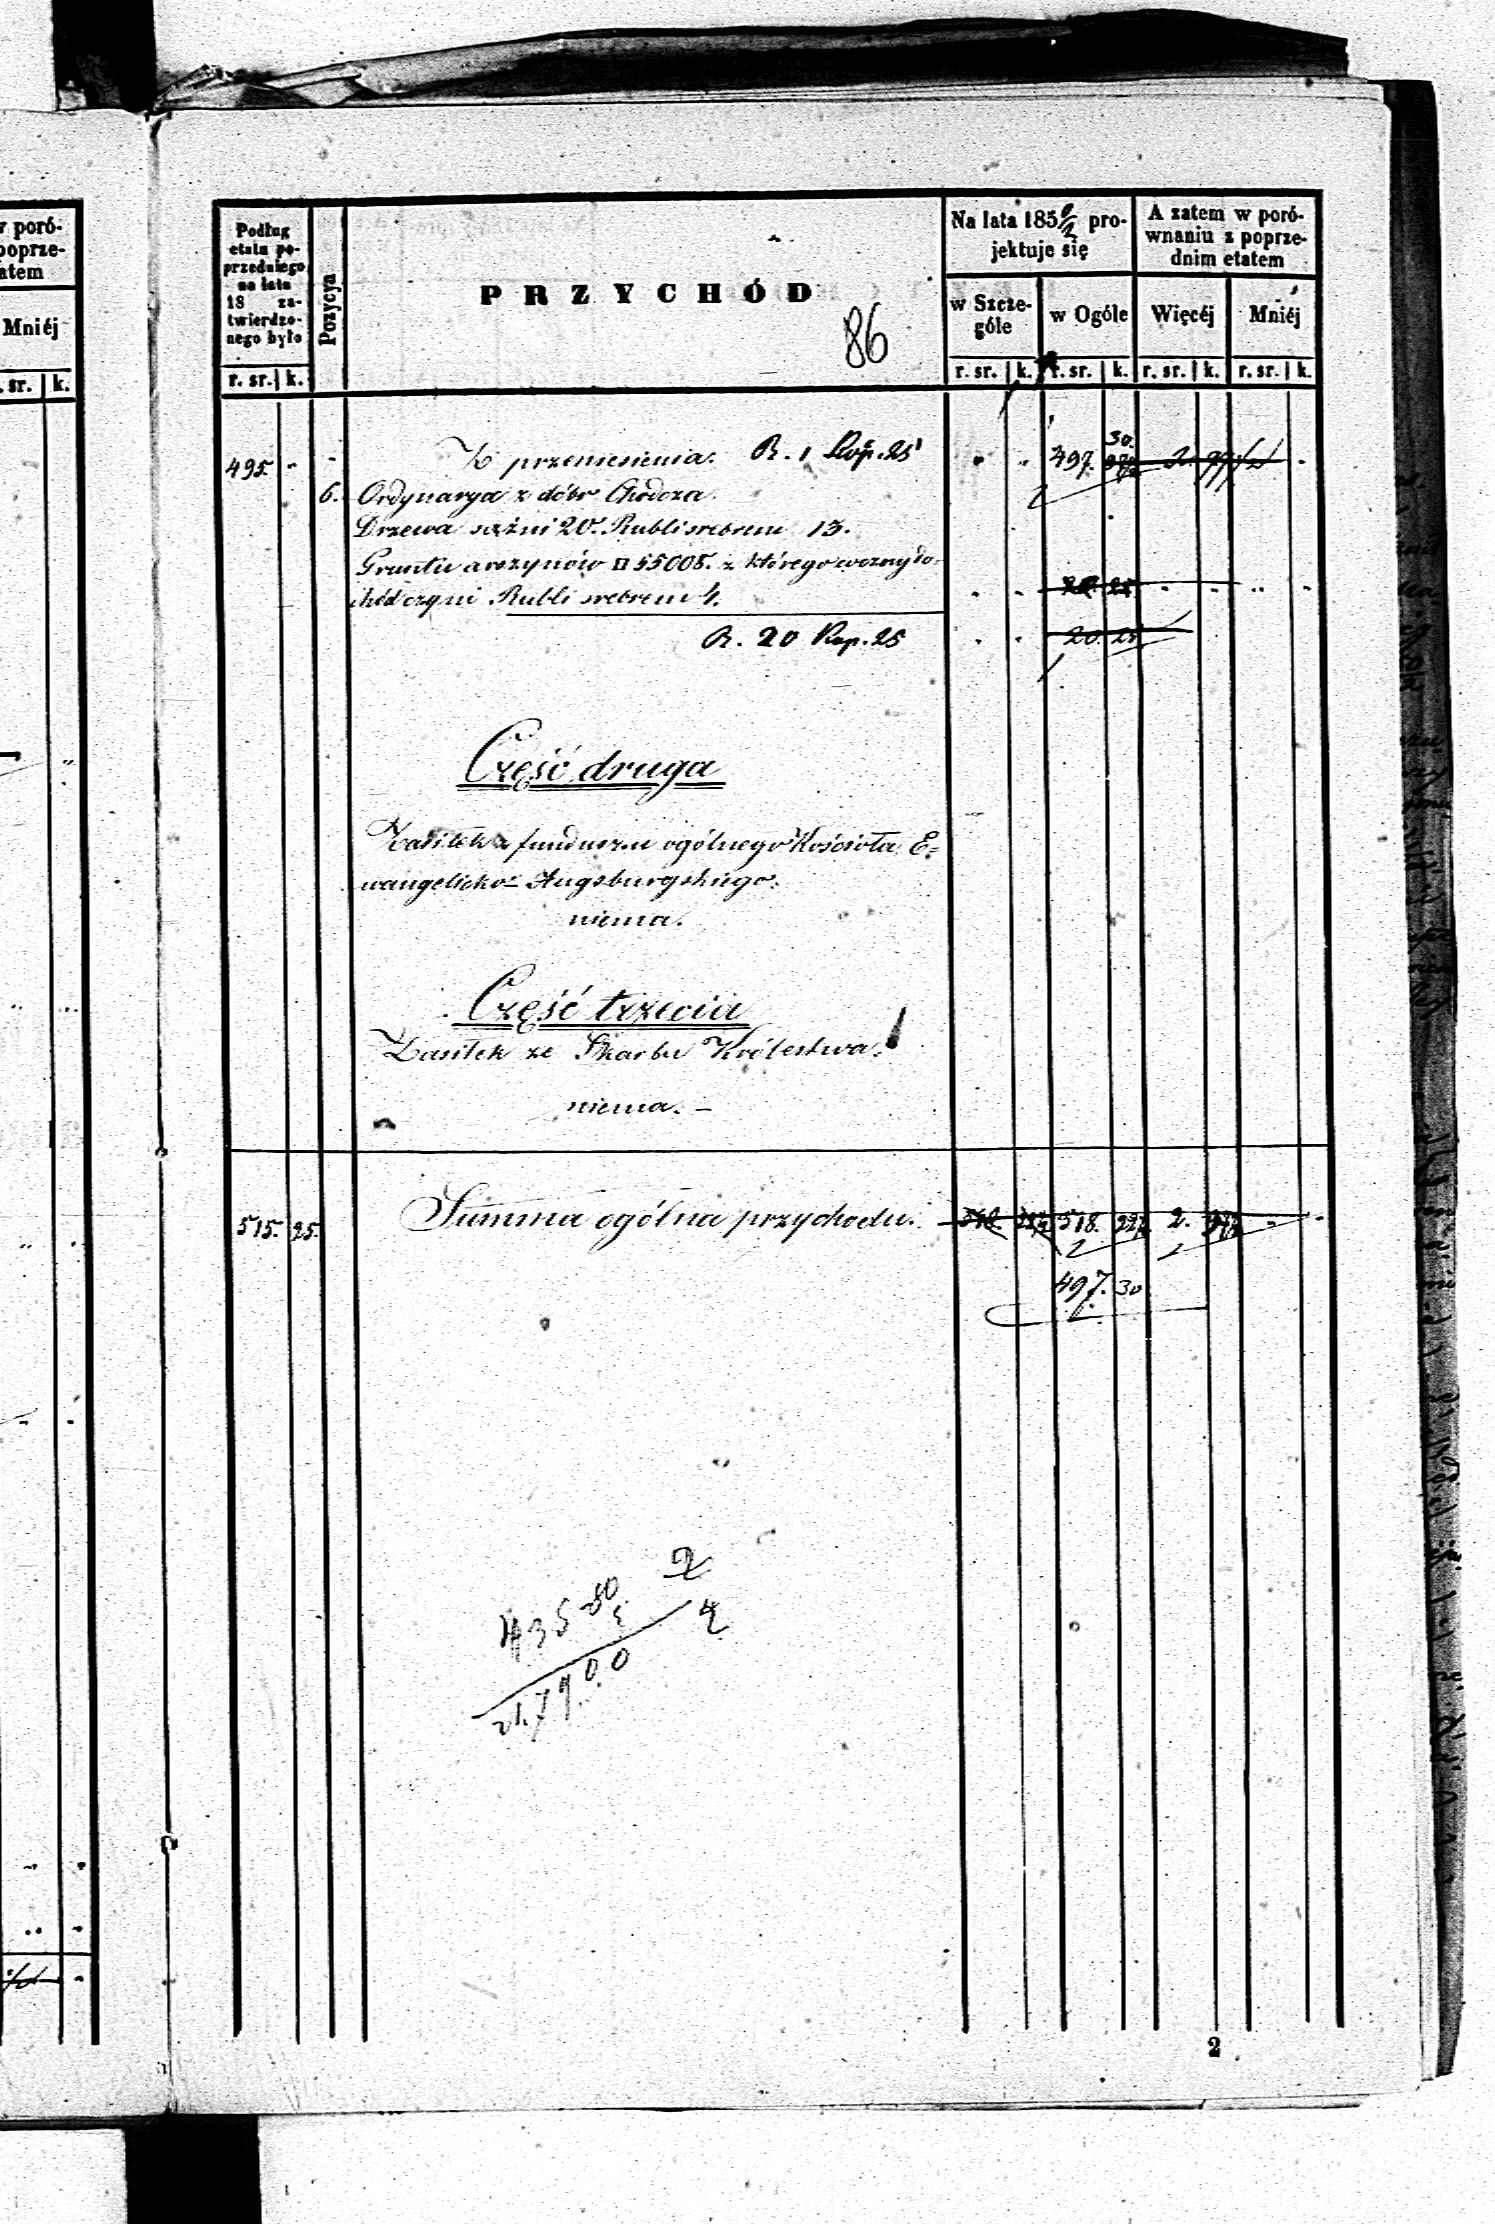 w poró-
poprze-
atem
Mniéj
sr. k.
Podług
etatu po-
przedniego
na lata
18 za-
twierdzo-
nego było
r. sr. k.
Pozycya
PRZYCHÓD
86
Na lata 185 pro-
jektuje się
w Szcze-
góle
w Ogóle
r. sr. k. r. sr. k.
A zatem w poró-
wnaniu z poprze-
dnim etatem
Więcéj Mniéj
r. sr. k. r. sr. k.
495. - - Z przeniesienia. R. 1 Kop. 25 497. 30.
6. Ordynarya z dóbr Chodcza.
Drzewa sążni 20. Rubli srebrem 13.
Gruntu □ 55008. z którego roczny do-
chód czyni Rubli srebrem 4.
R. 20 Kop. 25 20. 25
Część druga
Zasiłek z funduszu ogólnego Kościoła E-
wangelicko-Augsburgskiego.
niema.
Część trzecia
Zasiłek ze Skarbu Królestwa.
niema. -
515. 25. Summa ogólna przychodu. 518. 2.
497. 30
2
435 80
5
4
2179.00
2